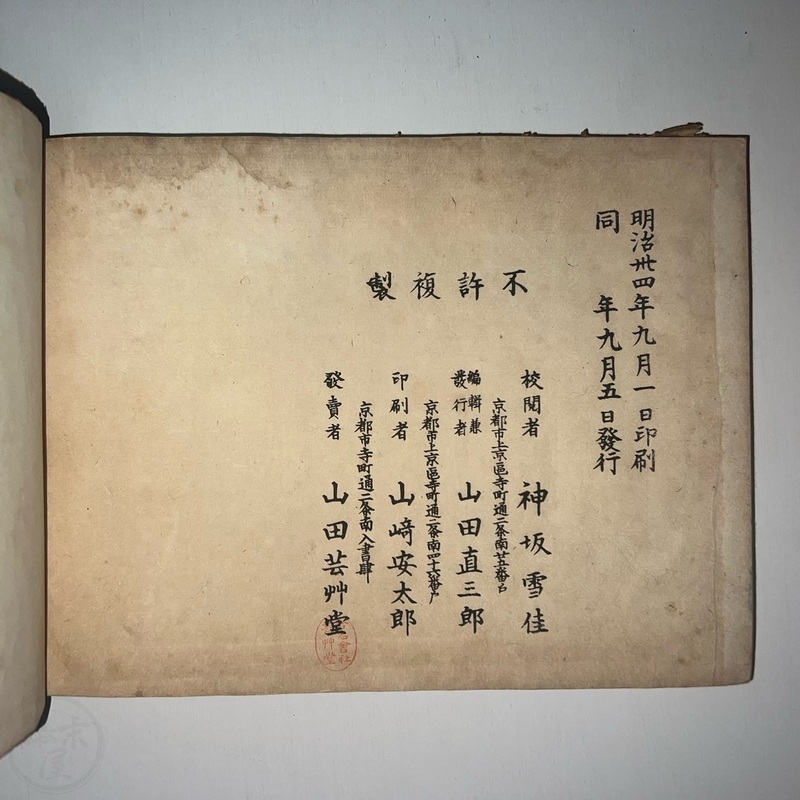 明治丗四年九月一日印刷
同　　年九月五日發行
不許複製
校閲者　神坂雪佳
京都市上京區寺町通二条南廿五番戸
編輯兼
發行者　山田直三郎
京都市上京區寺町通二条南四十六番戸
印刷者　山﨑安太郎
京都市寺町通二条南入書肆
發賣者　山田芸艸堂